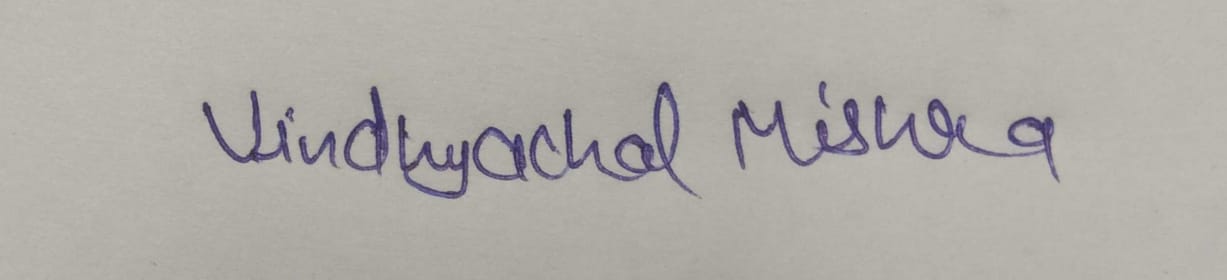 Vindhyachal Mishra